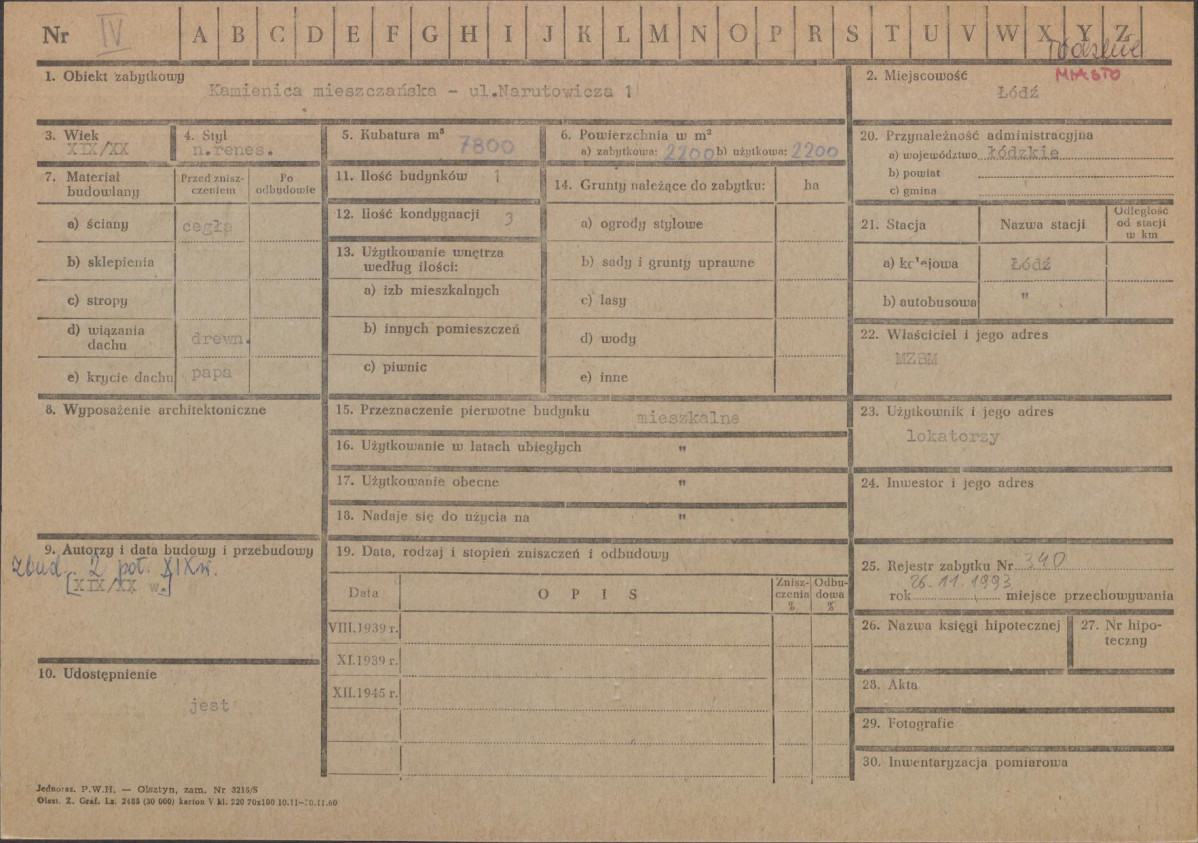 Nr IV A B C D E F G H I J K L M N O P R S T U V W X Y Z
1. Obiekt zabytkowy
Kamienica mieszczańska - ul.Narutowicza 1
2. Miejscowość
MIASTO
Łódź
3. Wiek
XIX/XX
4. Styl
n.renes.
5. Kubatura m³
7800
6. Powierzchnia w m²
a) zabytkowa: 2200 b) użytkowa: 2200
7. Materiał budowlany
Przed zniszczeniem
Po odbudowie
a) ściany cegła
b) sklepienia
c) stropy
d) wiązania dachu drewn.
e) krycie dachu papa
8. Wyposażenie architektoniczne
9. Autorzy i data budowy i przebudowy
zbud. 2 poł. XIX w.
[XIX/XX w.]
10. Udostępnienie
jest
11. Ilość budynków 1
12. Ilość kondygnacji 3
13. Użytkowanie wnętrza
według ilości:
a) izb mieszkalnych
b) innych pomieszczeń
c) piwnic
14. Grunty należące do zabytku: ha
a) ogrody stylowe
b) sady i grunty uprawne
c) lasy
d) wody
e) inne
15. Przeznaczenie pierwotne budynku mieszkalne
16. Użytkowanie w latach ubiegłych "
17. Użytkowanie obecne "
18. Nadaje się do użycia na "
19. Data, rodzaj i stopień zniszczeń i odbudowy
Data OPIS Zniszczenia % Odbudowa %
VIII.1939 r.
XI.1939 r.
XII.1945 r.
20. Przynależność administracyjna
a) województwo łódzkie
b) powiat
c) gmina
21. Stacja Nazwa stacji Odległość od stacji w km
a) kolejowa Łódź
b) autobusowa "
22. Właściciel i jego adres
MZBM
23. Użytkownik i jego adres
lokatorzy
24. Inwestor i jego adres
25. Rejestr zabytku Nr 340
26.11.1993
rok miejsce przechowywania
26. Nazwa księgi hipotecznej
27. Nr hipoteczny
28. Akta
29. Fotografie
30. Inwentaryzacja pomiarowa
Jednoraz. P.W.H. — Olsztyn, zam. Nr 3215/S
Olszt. Z. Graf. Lz. 2485 (30 000) karton V kl. 220 70x100 10.11–20.11.60